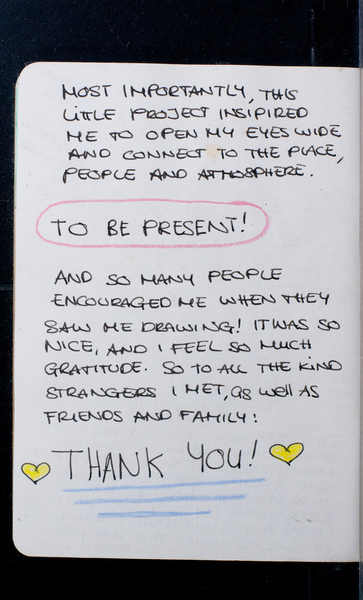 MOST IMPORTANTLY, THIS
LITTLE PROJECT INSIPIRED
ME TO OPEN MY EYES WIDE
AND CONNECT TO THE PLACE,
PEOPLE AND ATMOSPHERE.
TO BE PRESENT!
AND SO MANY PEOPLE
ENCOURAGED ME WHEN THEY
SAW ME DRAWING! IT WAS SO
NICE, AND I FEEL SO MUCH
GRATITUDE. SO TO ALL THE KIND
STRANGERS I MET, AS WELL AS
FRIENDS AND FAMILY:
THANK YOU!